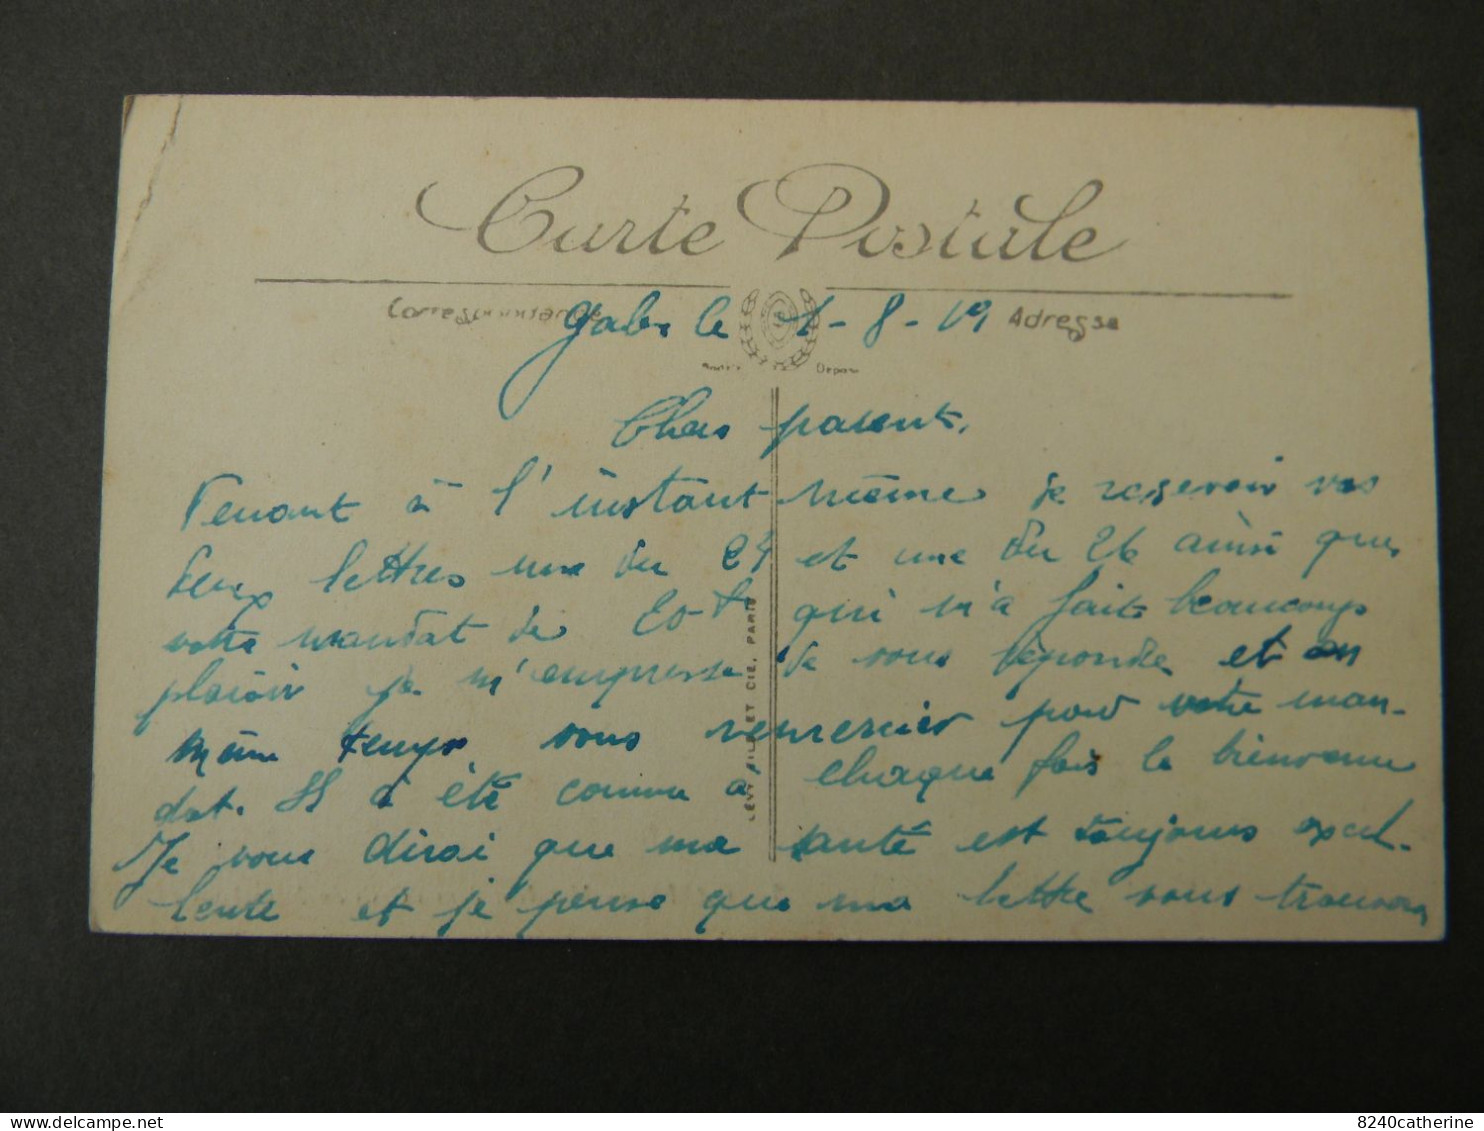 Carte Postale
Correspondance
Adresse
Gabès le 1-8-19
Chers parents,
Venant à l'instant même de recevoir vos
deux lettres une du 24 et une du 26 ainsi que
votre mandat de 20 f qui m'a fait beaucoup
plaisir je m'empresse de vous répondre et en
même temps vous remercier pour votre man-
dat. Il a été comme a chaque fois le bienvenu
Je vous dirai que ma santé est toujours excel-
lente et je pense que ma lettre vous trouvera
LÉVY FILS ET CIE, PARIS
8240catherine